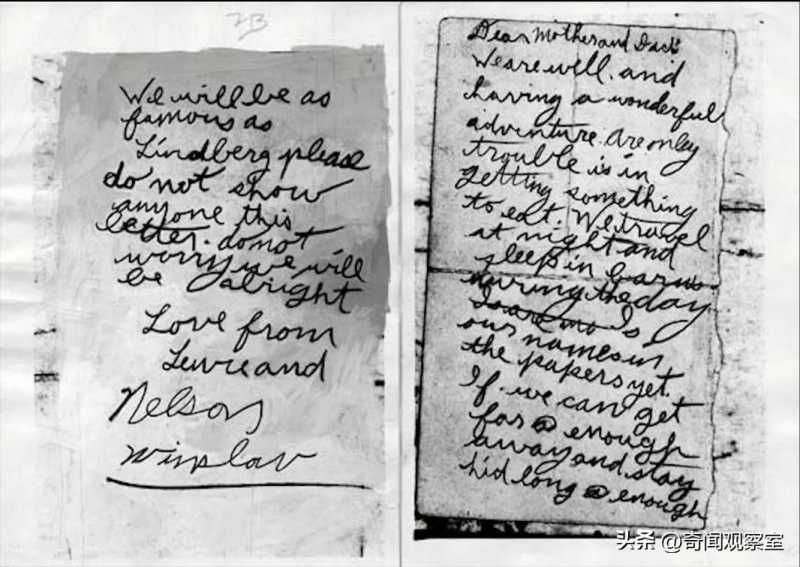 We will be as
famous as
Lindberg please
do not show
anyone this
letter. do not
worry we will
be alright
Love from
and
Nelson
Dear Mother and Dad
We are well. and
having a wonderful
adventure. are only
trouble is in
getting something
to eat. We travel
at night and
sleep in barns
during the day
Is
our names in
the papers yet.
If we can get
far enough
away and stay
hid long enough
头条 @奇闻观察室